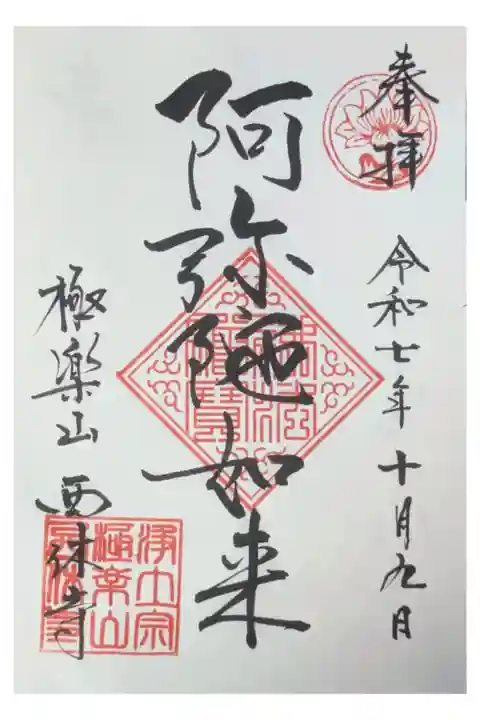 奉拝
令和七年十月九日
阿弥陀如来
佛法僧寶
極楽山西休寺
浄土宗
極楽山
西休寺